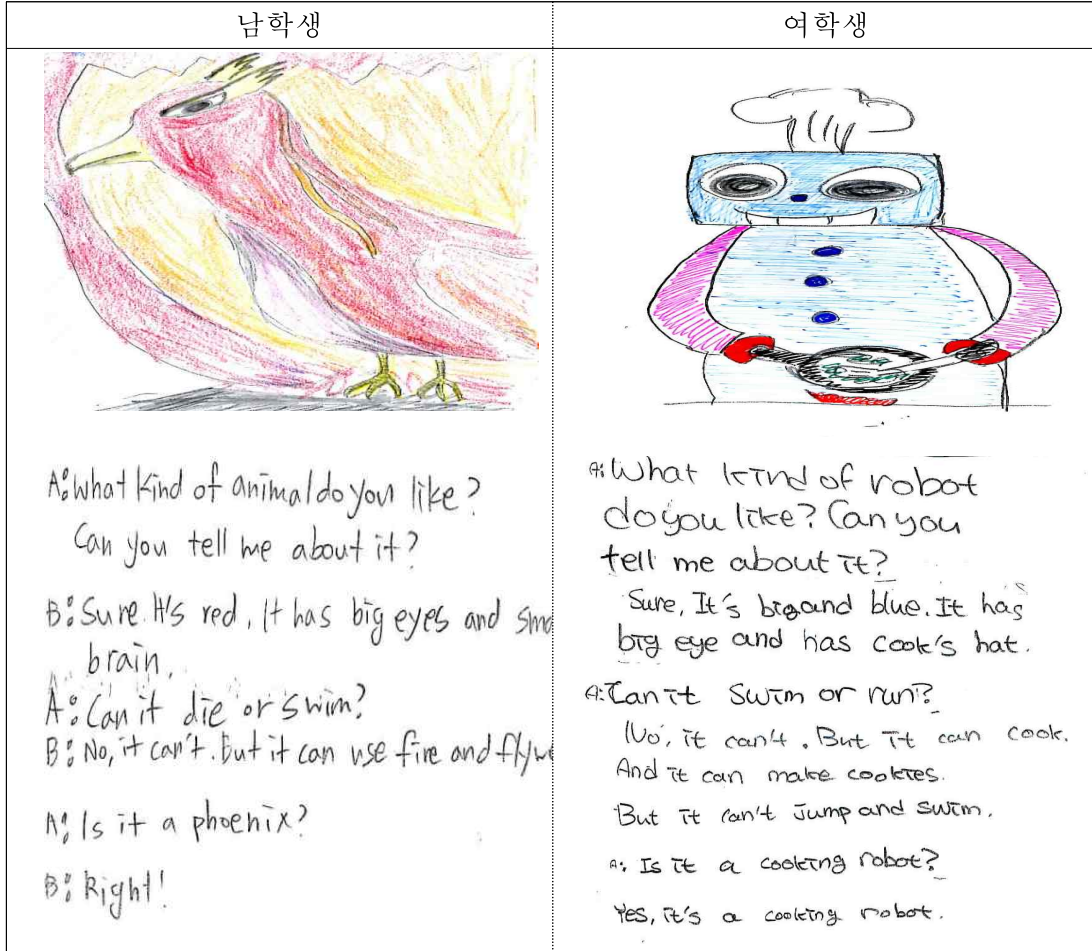 남학생
여학생
A: What kind of animal do you like?
Can you tell me about it?
B: Sure. It's red. It has big eyes and
brain.
A: Can it die or swim?
B: No, it can't. But it can use fire and fly
A: Is it a phoenix?
B: Right!
A: What kind of robot
do you like? Can you
tell me about it?
Sure, It's big and blue. It has
big eye and has cook's hat.
A: Can it swim or run?
No, it can't. But it can cook.
And it can make cookies.
But it can't jump and swim.
A: Is it a cooking robot?
Yes, it's a cooking robot.